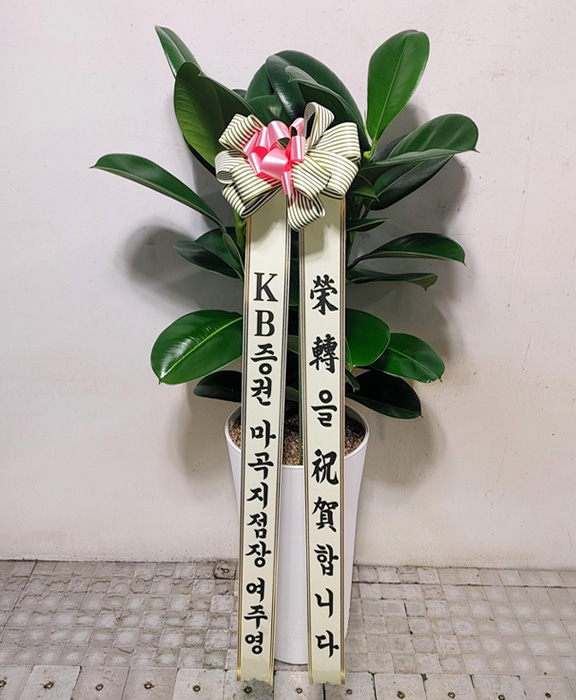 KB증권 마곡지점장 여주영
榮轉을 祝賀합니다